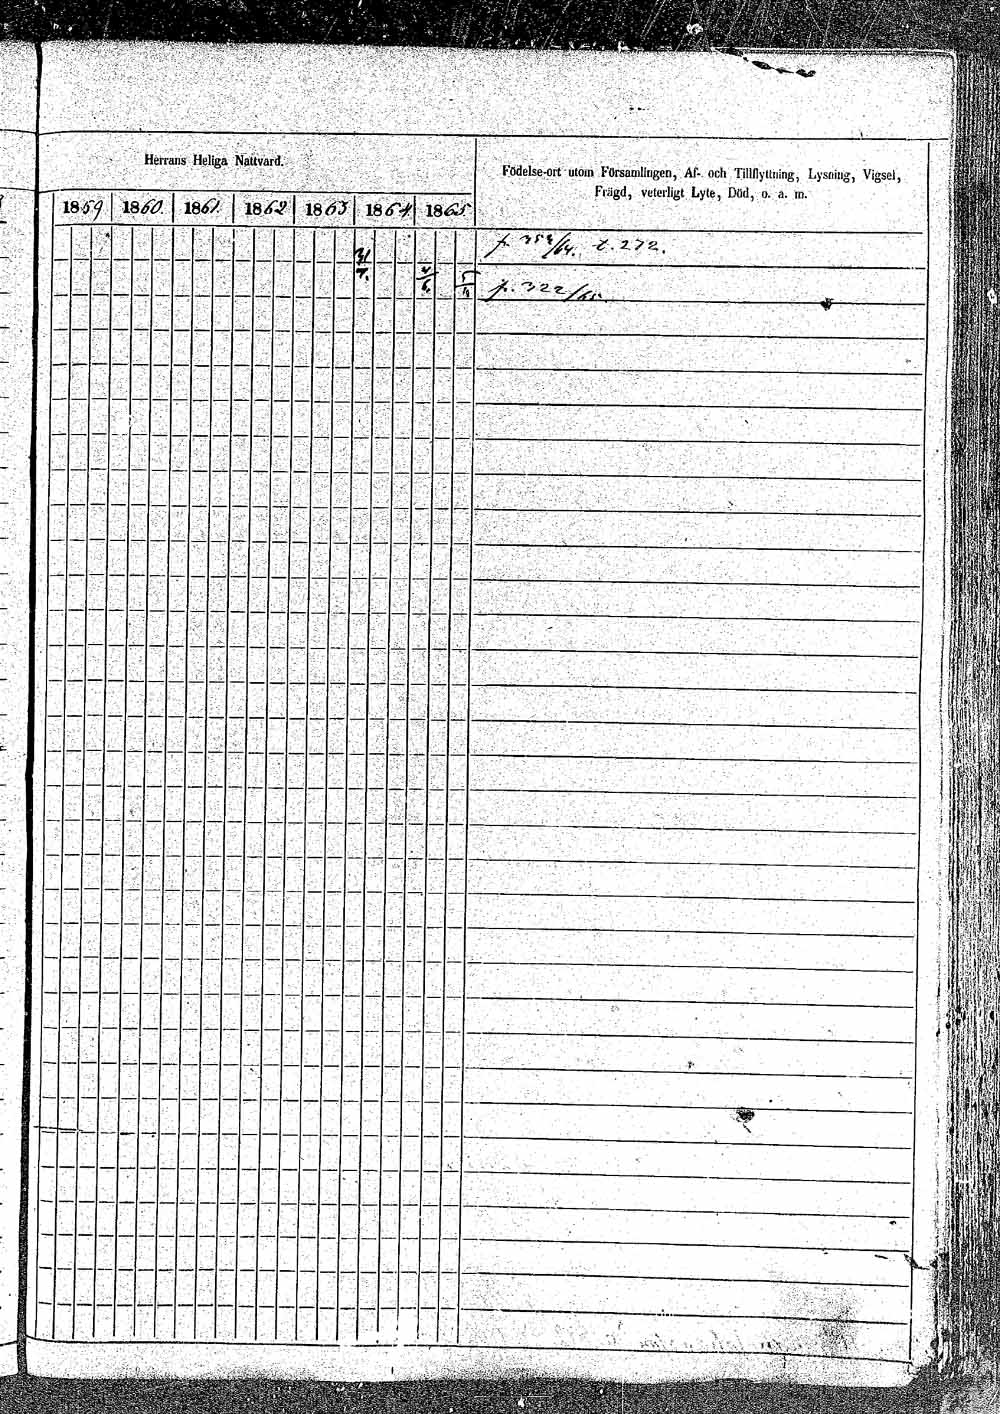 Herrans Heliga Nattvard.
Födelse-ort utom Församlingen, Af- och Tillflyttning, Lysning, Vigsel,
Frägd, veterligt Lyte, Död, o. a. m.
1859 1860. 1861. 1862 1863 1864 1865
/64. t. 272.
4/6. 5/11 p. 322/65.